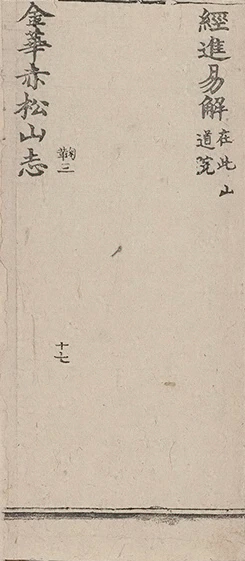 經進易解
在此山
道院
鞠三
十七
金華赤松山志